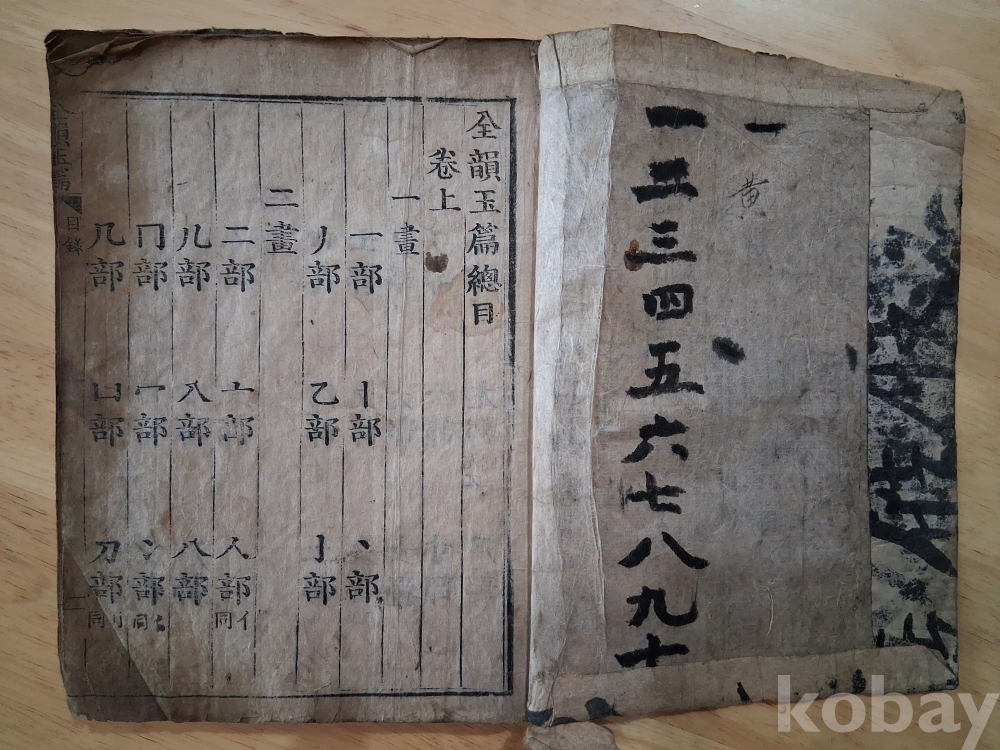 一
黃
一二三四五六七八九十
全韻玉篇總目
卷上
一畫
一部 丨部 丶部
丿部 乙部 亅部
二畫
二部 亠部 人部 亻同
儿部 入部 八部
冂部 冖部 冫部
几部 凵部 刀部 刂同
全韻玉篇 目錄
kobay